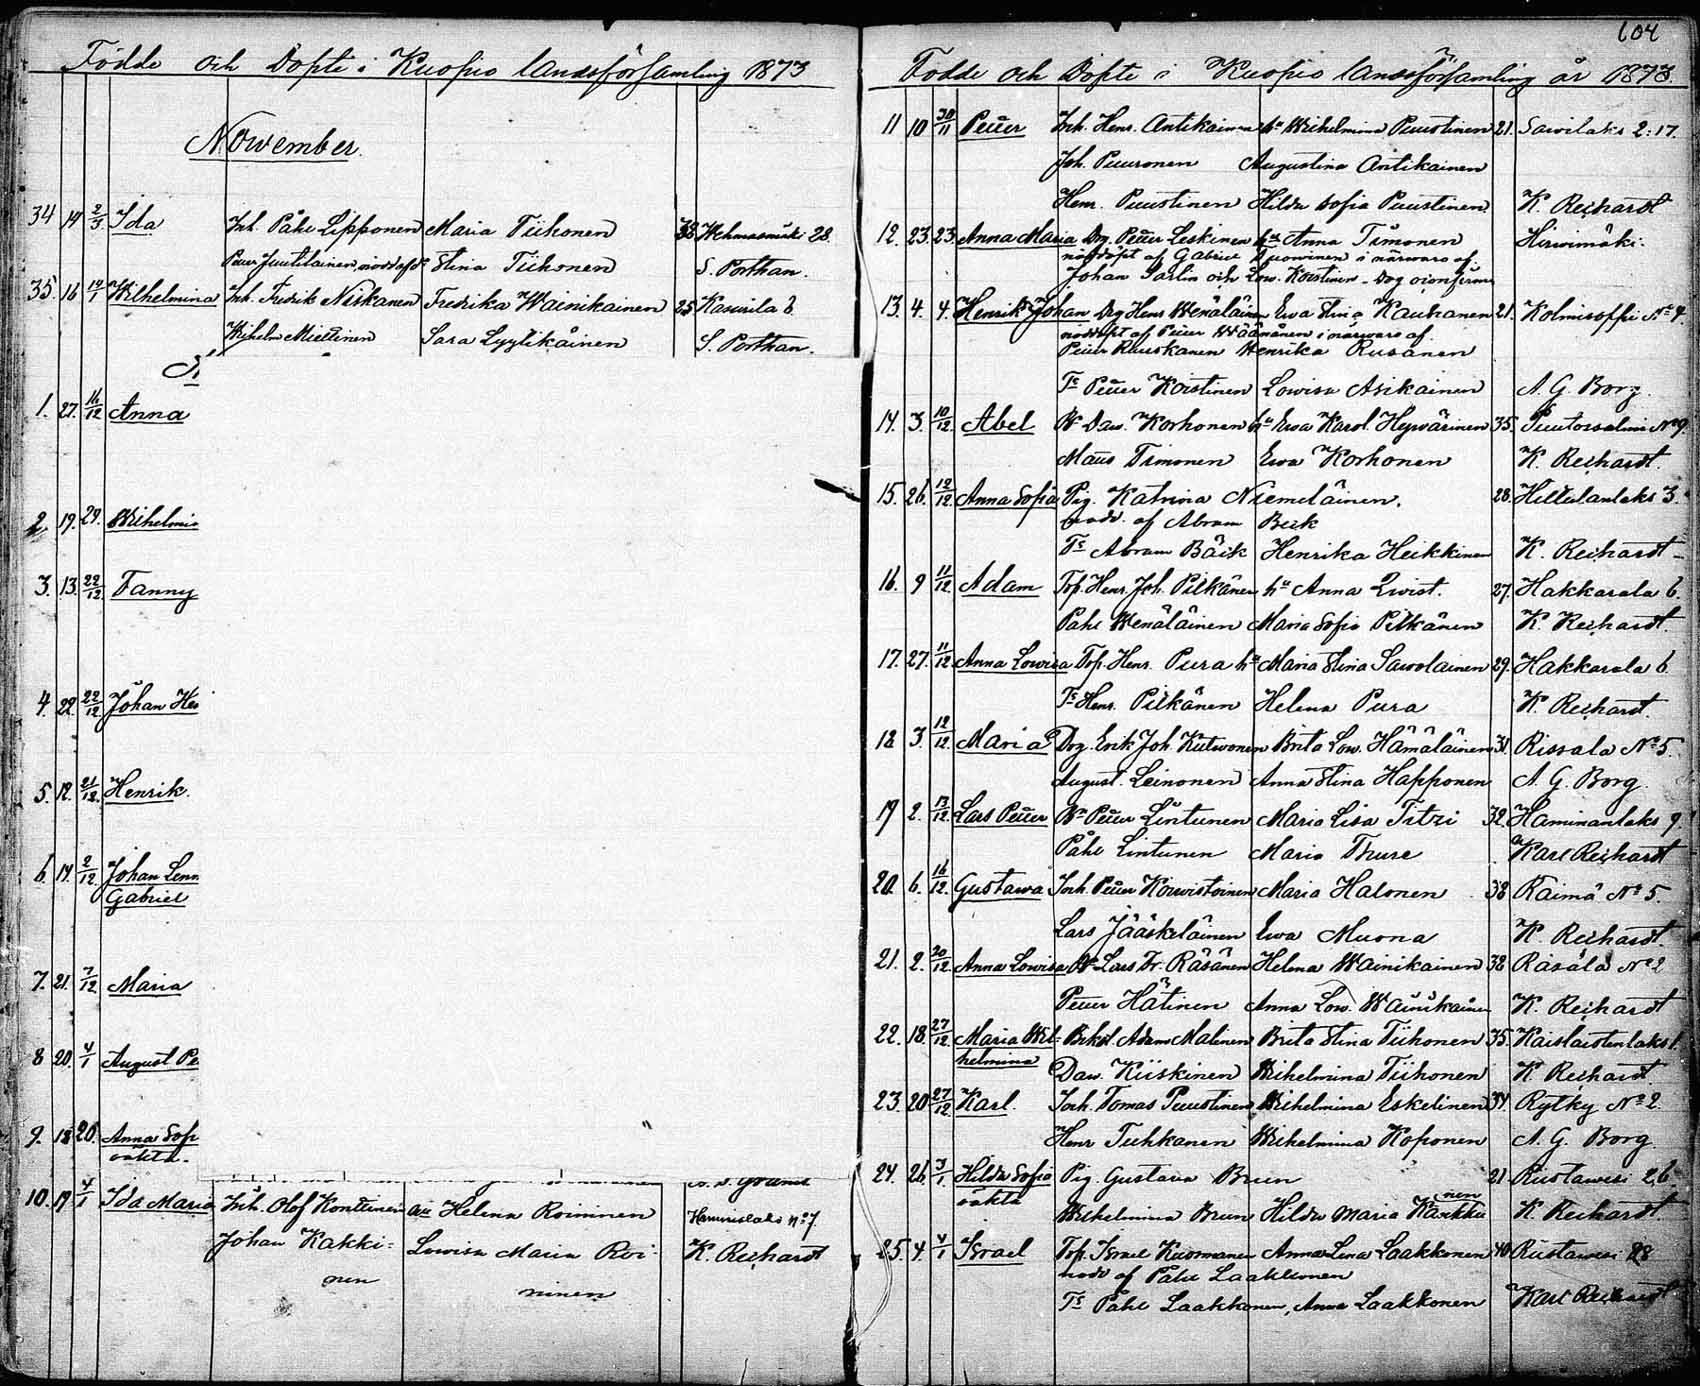 604
Födde och Döpte i Kuopio landsförsamling 1873
November.
34 14 2/3 Ida Inh. Påhl Lipponen Maria Tiihonen 38 Wehmasmäki 28.
Petter Juutilainen Stina Tiihonen S. Porthan.
35. 16 19/1 Wilhelmina Inh. Fredrik Niskanen Fredrika Wainikainen 25 Kasurila 6
Wilhelm Miettinen Sara Lyytikäinen S. Porthan.
1. 27. 16/12 Anna
2 19. 29. Wilhelmi
3. 13. 22/12 Fanny
4. 22. 22/12 Johan Hei
5. 12. 21/12 Henrik.
6. 14. 2/12 Johan Lenn
Gabriel
7. 21. 7/12 Maria
8 20. 4/1 August Pe
9. 18 20. Anna Sop
oäkta.
10. 19 4/1 Ida Maria Inh. Olof Konttinen Helena Roininen Haminalaks No 7.
Johan Kakki= Lowisa Maria Roi- K. Reichardt
nen ninen
Födde och Döpte i Kuopio landsförsamling år 1873.
11 10 30/11 Petter Inh. Henr. Antikainen hu Wilhelmina Puustinen 21. Sawilaks 2:17.
Joh. Puuronen Augustina Antikainen
Henr. Puustinen Hilda Sofia Puustinen. K. Reichardt
12. 23. 23. Anna Maria Drg. Petter Leskinen hu Anna Timonen Hirwimäki.
nöddöpt af Gabriel i närwaro af
Johan Sarlin och Low. Koistinen
13. 4. 4. Henrik Johan Drg Henr Wenäläinen Ewa Stina Kauhanen 21. Kolmisoppi No 4.
nöddöpt af Petter Wäänänen i närwaro af
Petter Ruuskanen Henrika Rusanen
Ts Petter Koistinen Lowisa Asikainen A. G. Borg.
14. 3. 10/12. Abel Daw. Korhonen hu Ewa Karol. Hywärinen 35. Puutossalmi No 9.
Maus Timonen Ewa Korhonen K. Reichardt.
15. 26. 12/12. Anna Sofia Pig. Katrina Niemeläinen. 28. Hiltulanlaks 3.
nödd. af Abram Bäck
Ts Abram Bäck Henrika Heikkinen K. Reichardt
16. 9 11/12. Adam Trp. Henr. Joh. Pitkänen hu Anna Qwist. 27. Hakkarala 6.
Påhl Wenäläinen Maria Sofia Pitkänen K. Reichardt.
17. 27. 11/12 Anna Lowisa Trp. Henr. Pura hu Maria Stina Sawolainen 29. Hakkarala 6.
Ts Henr. Pitkänen Helena Pura K. Reichardt.
18 3. 12/12. Maria Drg. Erik Joh. Kutwonen Brita Low. Hämäläinen 31. Rissala No 5.
August. Leinonen Anna Stina Happonen A. G. Borg.
19 2. 13/12. Lars Petter Petter Lintunen Maria Lisa Titzi 32. Haminanlaks 9.
Påhl Lintunen Maria Thure Karl Reichardt
20. 6. 16/12. Gustawa Inh. Petter Koiwistoinen Maria Halonen 38 Räimä No 5.
Lars Jääskeläinen Ewa Muona K. Reichardt
21. 2. 20/12. Anna Lowisa Lars Fr. Räsänen Helena Wainikainen 38 Räsälä No 2
Petter Hätinen Anna Low. Wainikainen K. Reichardt
22. 18. 27/12. Maria Wil= Adam Malinen Brita Stina Tiihonen 35. Kaislastenlaks 1.
helmina
Daw. Kiiskinen Wilhelmina Tiihonen K. Reichardt.
23. 20 27/12. Karl. Inh. Tomas Puustinen Wilhelmina Eskelinen 34 Rytky No 2.
Henr Tuhkanen Wilhelmina Koponen A. G. Borg.
24. 26. 3/1. Hilda Sofia Pig Gustava Brun 21 Riistawesi 26
oäkta Wilhelmina Brun Hilda Maria Karkku nen K. Reichardt.
25. 4. 4/1 Israel Trp. Israel Kuosmanen Anna Lena Laakkonen 40 Riistawesi 28
nödd af Påhl Laakkonen
Ts Påhl Laakkonen, Anna Laakkonen Karl Reichardt